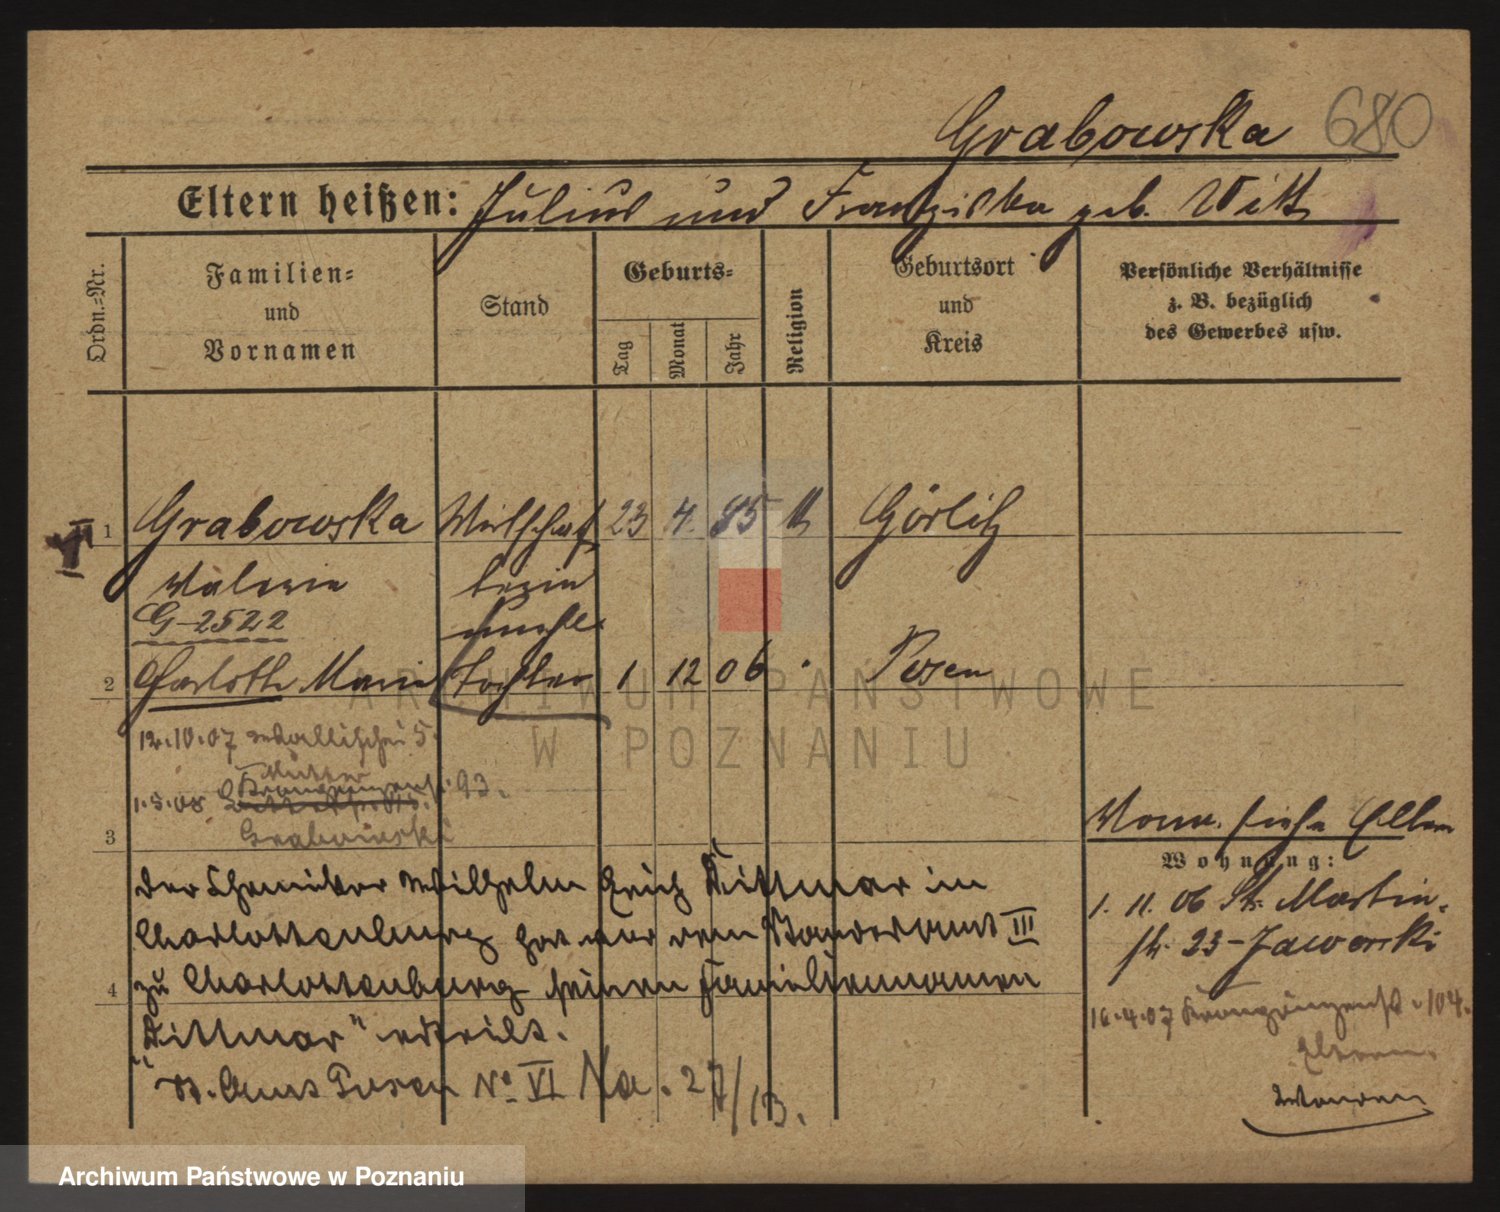 Grabowska 680
Eltern heißen: Julius und Franziska geb. Witt
Ordn.=Nr.
Familien=
und
Vornamen
Stand
Geburts=
Tag
Monat
Jahr
Religion
Geburtsort
und
Kreis
Persönliche Verhältnisse
z. B. bezüglich
des Gewerbes usw.
1 Grabowska Wirtschaf 23 4. 85 Görlitz
Valerie terin
G-2522
2 Marie Tochter 1 12 06 Posen
ARCHIWUM PAŃSTWOWE
W POZNANIU
12.10.07 Wallischei 5.
Mutter
1.5.08 Kronprinzenst. 93.
3 Grabowski
Vorm. siehe Eltern
Wohnung:
1. 11. 06 St. Martin-
str. 23-Jaworski
16.4.07 Kronprinzenst. 104.
Eltern.
Der Chemiker Wilhelm Erich Dittmar in
Charlottenburg hat vor dem Standesamt III
4 zu Charlottenburg seinen Familiennamen
"Dittmar" erteilt.
St. Amt Posen No VI Na. 27/13.
Archiwum Państwowe w Poznaniu